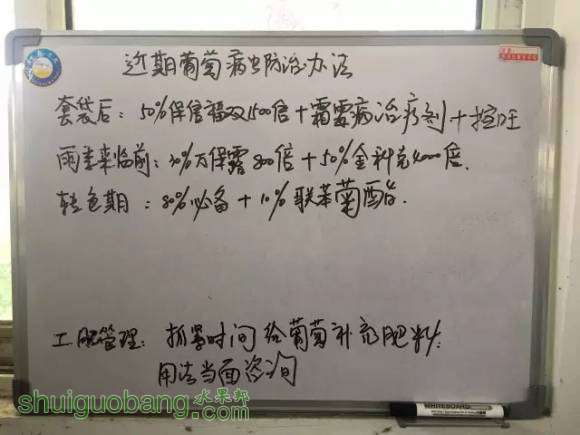 近期葡萄病虫防治办法
套袋后：50%保倍福双1500倍+霜霉病治疗剂+控旺
雨季来临前：30%万保露800倍+50%金科克4000倍.
转色期：80%必备+10%联苯菊酯.
土肥管理：抓紧时间给葡萄补充肥料.
用法当面咨询
水果邦
shuiguobang.com
WHITEBOARD